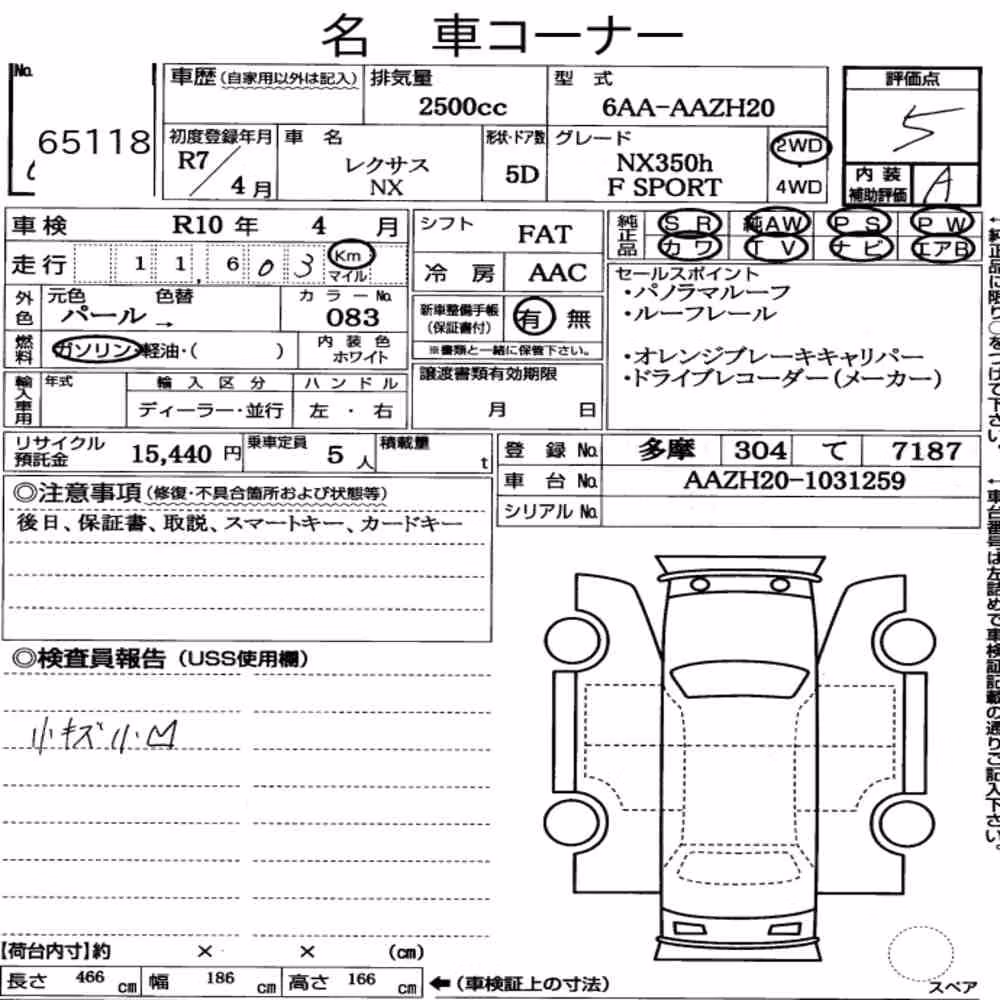 名 車コーナー
No. 65118
車歴(自家用以外は記入)
排気量 2500cc
型式 6AA-AAZH20
評価点 5
初度登録年月 R7/4月
車名 レクサス NX
形状・ドア数 5D
グレード NX350h F SPORT
2WD
4WD
内装補助評価 A
車検 R10年 4月
シフト FAT
純正品 SR 純AW PS PW
カワ TV ナビ エアB
走行 11,603 Km マイル
冷房 AAC
セールスポイント
・パノラマルーフ
・ルーフレール
・オレンジブレーキキャリパー
・ドライブレコーダー(メーカー)
外色 元色 パール → 色替
カラーNo. 083
新車整備手帳(保証書付) 有 無
※書類と一緒に保管下さい。
燃料 ガソリン・軽油・( )
内装色 ホワイト
譲渡書類有効期限 月 日
輸入車用 年式
輸入区分 ディーラー・並行
ハンドル 左・右
リサイクル預託金 15,440円
乗車定員 5人
積載量 t
登録No. 多摩 304 て 7187
車台No. AAZH20-1031259
シリアルNo.
◎注意事項(修復・不具合箇所および状態等)
後日、保証書、取説、スマートキー、カードキー
◎検査員報告(USS使用欄)
小キズ小凹
【荷台内寸】約 × × (cm)
長さ 466cm 幅 186cm 高さ 166cm ←(車検証上の寸法)
スペア
←純正品に限り○をつけて下さい。
←車台番号は左詰めで車検証記載の通りご記入下さい。